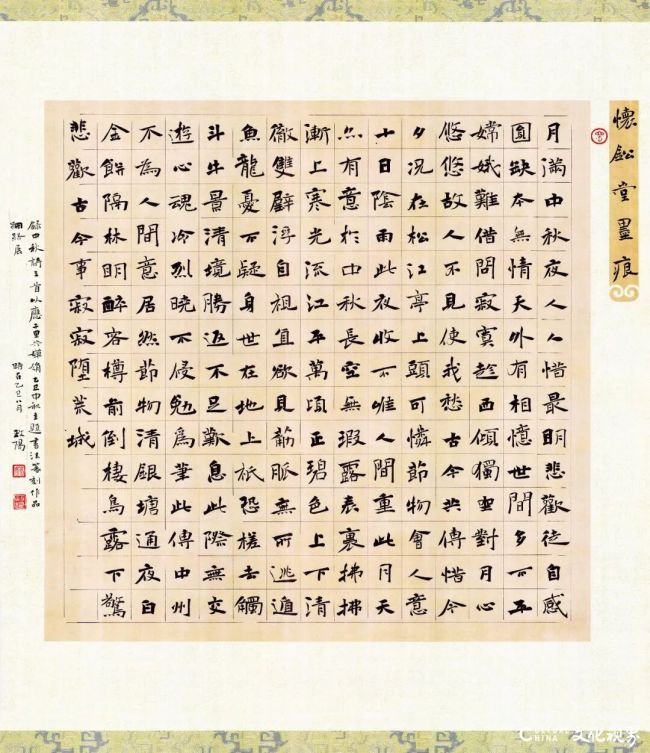 懷堂墨痕
月滿中秋夜人人惜最明悲歡徒自感
圓缺本無情天外有相憶世間多不平
嫦娥難借問寂寞趁西傾獨坐對月心
悠悠故人不見使我愁古今共傳惜今
夕況在松江亭上頭可憐節物會人意
十日陰雨此夜收不唯人間重此月天
亦有意於中秋長空無瑕露表裏拂拂
漸上寒光流江平萬頃正碧色上下清
徹雙璧浮自視直欲見筋脈無所逃遁
魚龍憂不疑身世在地上祇恐槎去觸
斗牛景清境勝返不足歎息此際無交
遊心魂冷烈曉不勉爲筆此傳中州
不為人間意居然節物清銀塘通夜白
金餅隔林明醉客樽前倒棲烏露下驚
悲歡古今事寂寂墮荒城
錄中秋詩三首以應千里共嬋娟乙巳中秋主題書法篆刻作品
網路展
時在乙巳八月
CHINA 文化视界